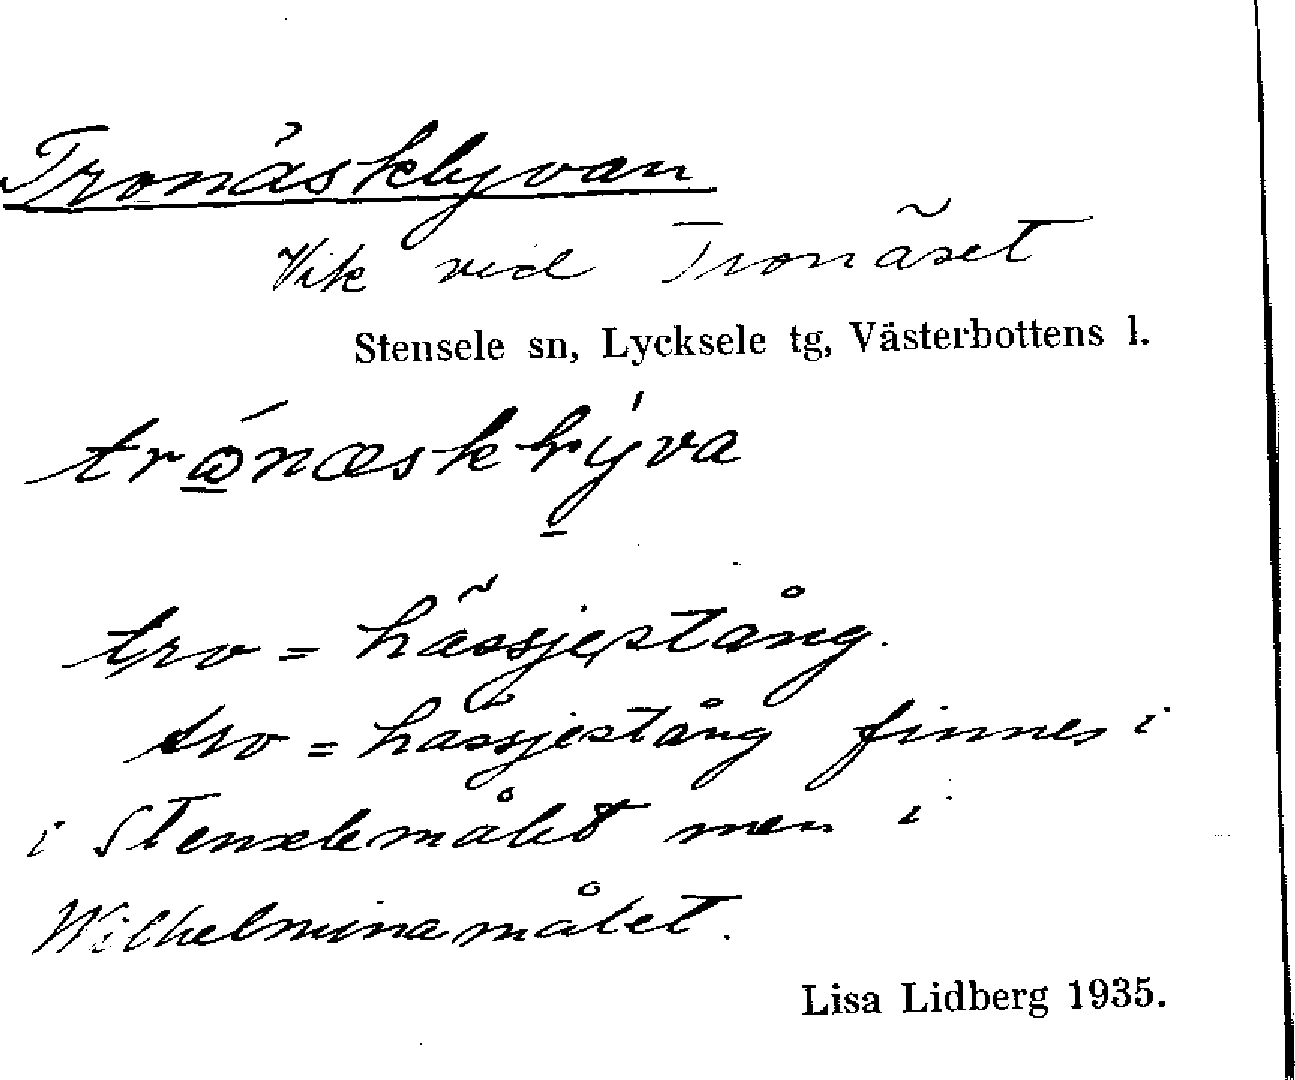 Tronäsklyvan
Vik vid Tronäset
Stensele sn, Lycksele tg, Västerbottens l.
tro = hässjestång.
tro = hässjestång finnes i
i Stenselemålet men i
Wilhelminamålet.
Lisa Lidberg 1935.